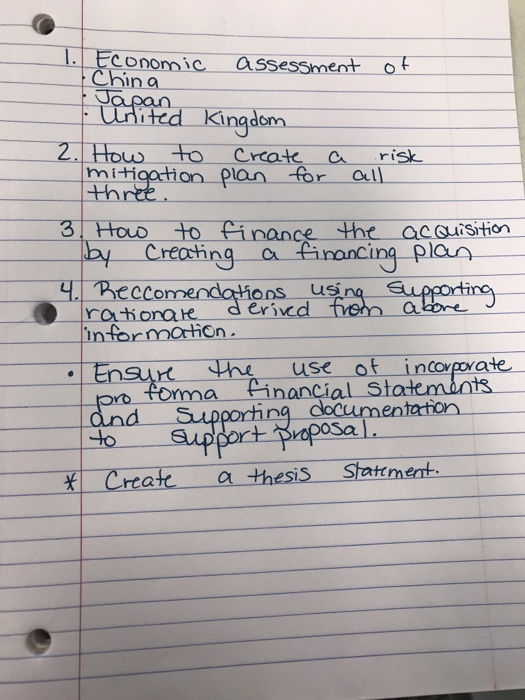 1. Economic assessment of
· China
· Japan
· United Kingdom
2. How to create a risk
mitigation plan for all
three.
3. How to finance the acquisition
by creating a financing plan
4. Reccomendations using supporting
rationale derived from above
information.
• Ensure the use of incorporate
pro forma financial statements
and supporting documentation
to support proposal.
* Create a thesis statement.